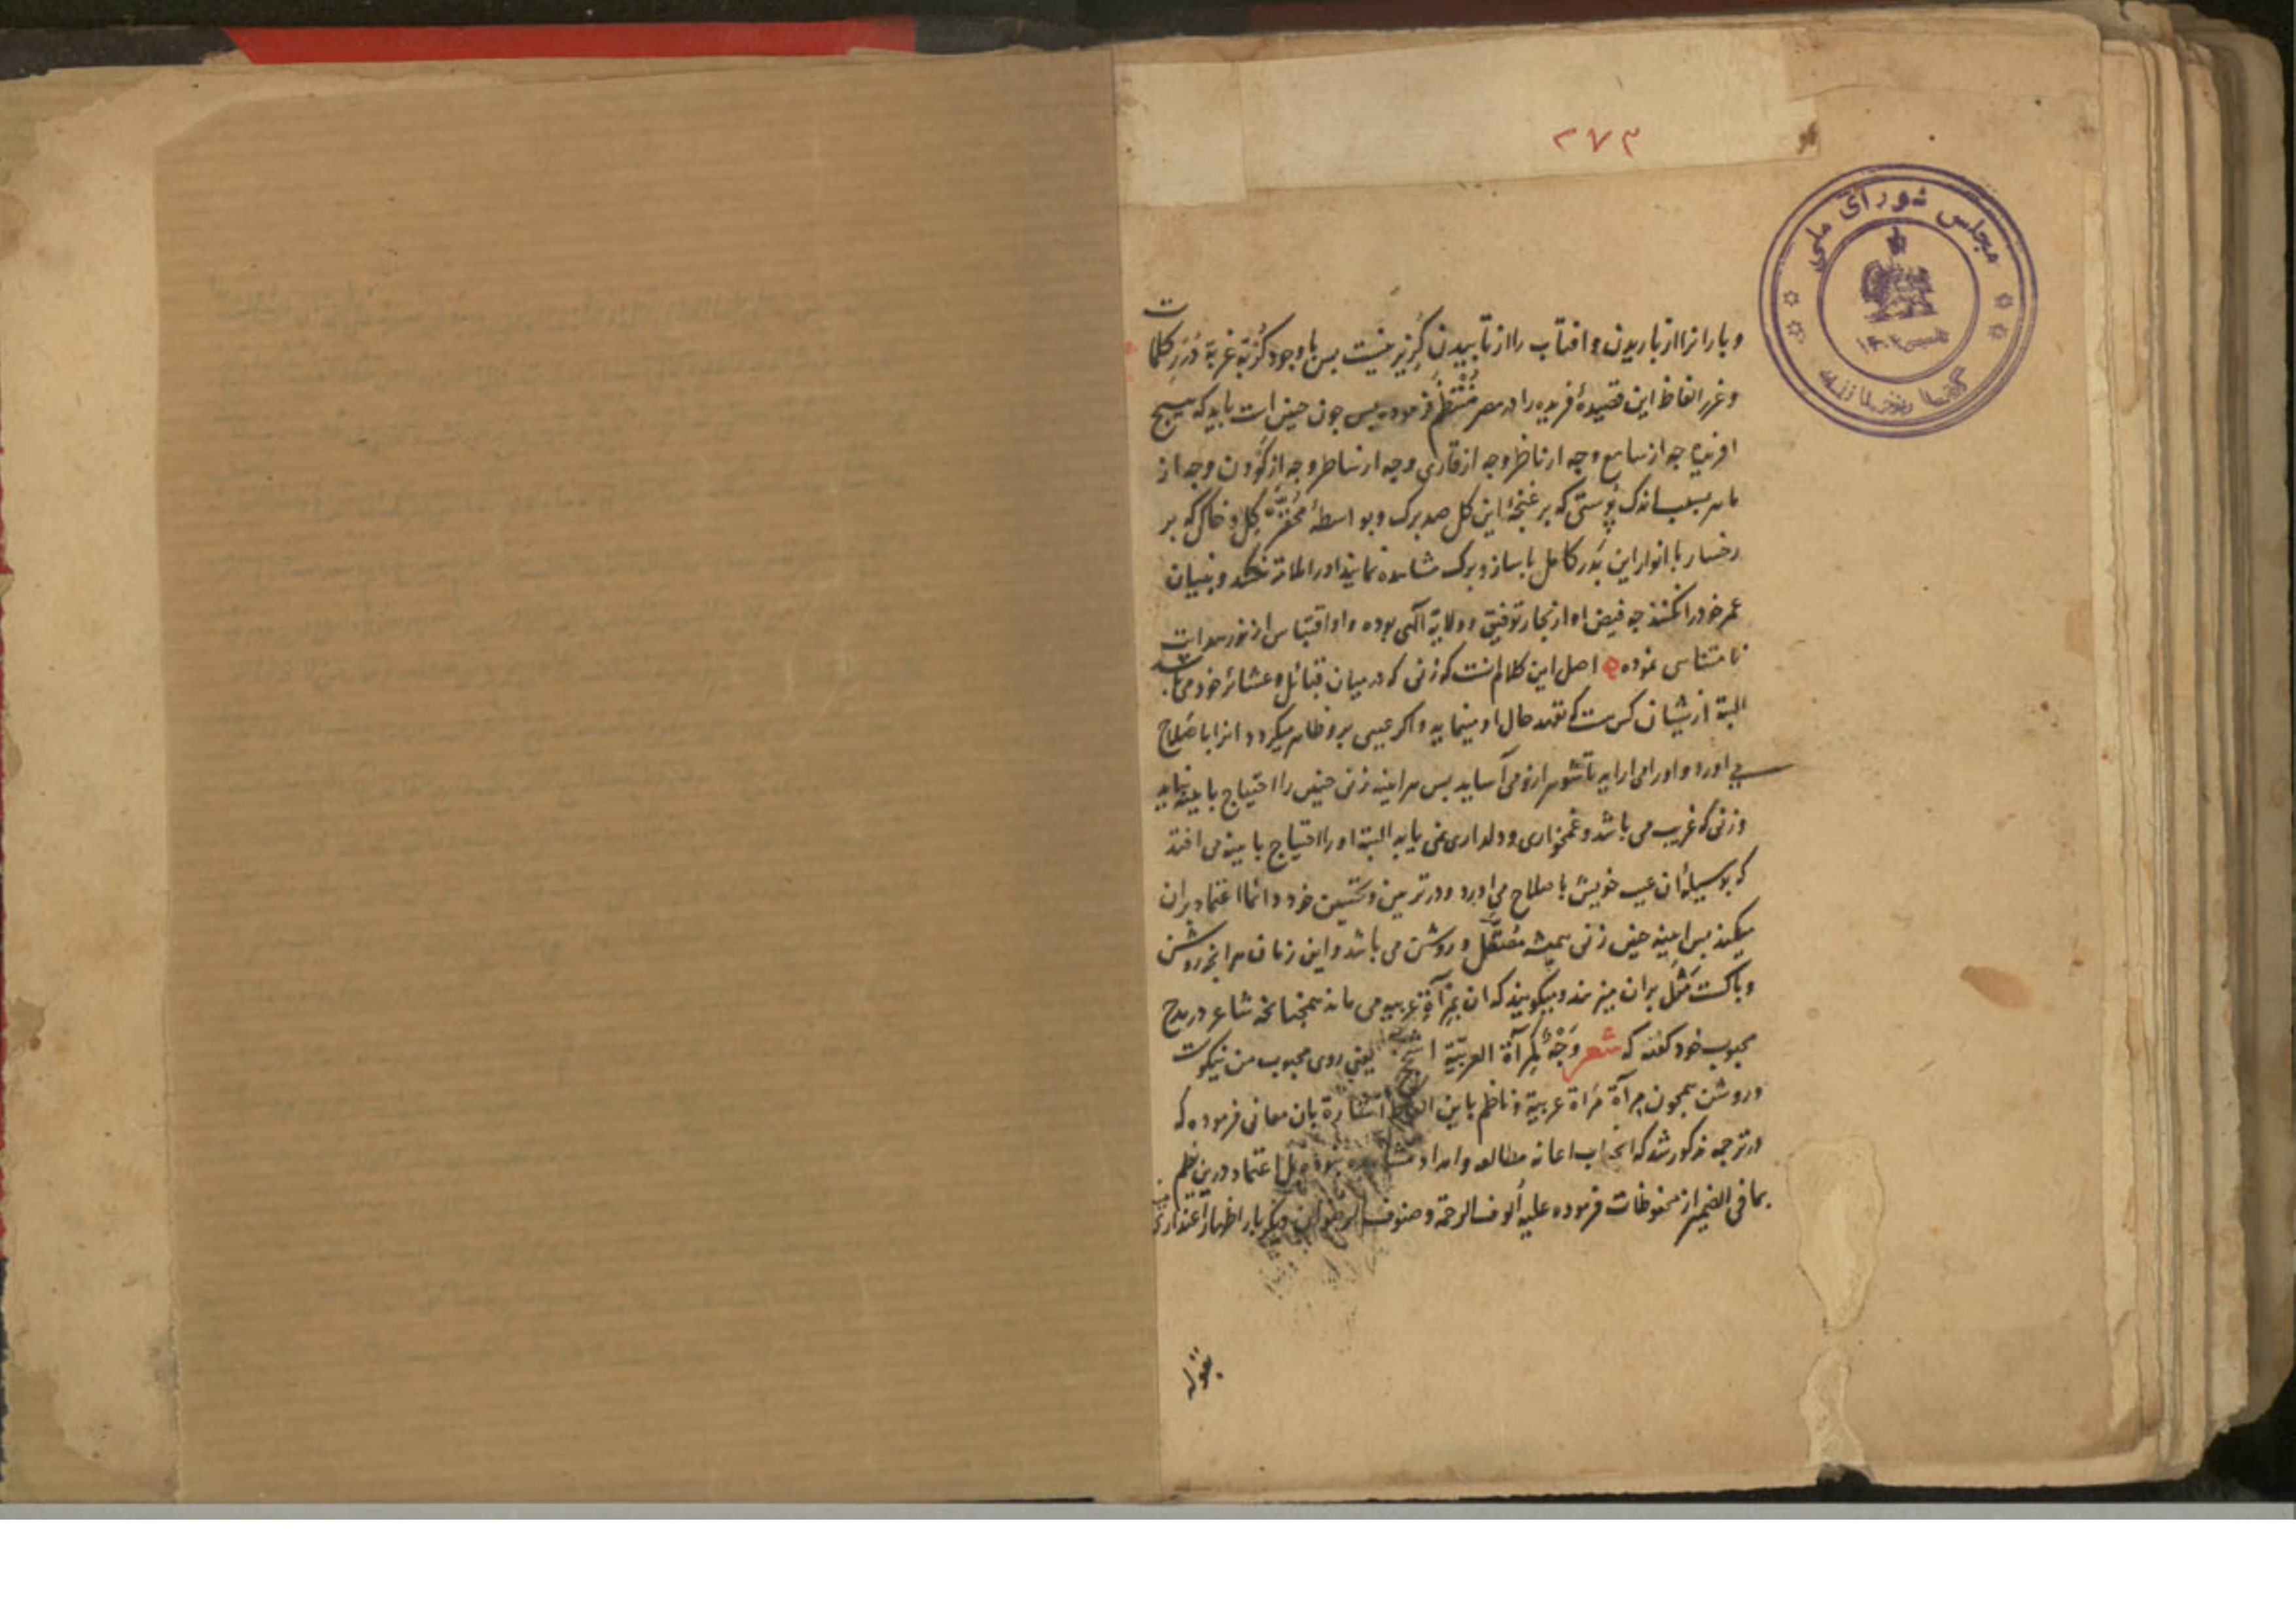 ٢٧٣
مجلس شورای ملی
تأسیس ١٣٠٢
کتابخانه
و بارانرا از باریدن و افتاب را از تابیدن گزیر نیست بس با وجود کربة غربة درر کلمات
و غرر الفاظ این قصیدهٔ فریده را در مصر منتظم فرموده بس جون جنین است باید که هیچ
افریده جه از سامع و جه از ناظر و جه از قاری و جه از شاطر و جه از کودن و جه از
ماهر بسبب اندک پوستی که بر غنجهٔ این کل صد برک و بواسطهٔ کل و خاکی که بر
رخسار با انوار این بدر کامل با ساز و برک مشاهده نمایند او را و بنیان
عمر خود را نکنند جه فیض او از بحار توفیق و ولایة آلهی بوده و او اقتباس از نور
نامتناهی نموده اصل این کلام انست که زنی که در میان قبائل و عشائر خود می باشد
البتة از یشان کسی هست که تعهد حال او مینماید و اکر عیبی برو ظاهر میکردد انرا باصلاح
می اورد و او را می اراید تا شوهر ازو می آساید بس هراینه زنی جنین را احتیاج باینه نیاید
و زنی که غریب می باشد و غمخواری و دلداری نمی یابد البتة او را احتیاج باینه می افتد
که بوسیلهٔ ان عیب خویش باصلاح می اورد و در تزیین و تحسین خود دائما اعتماد بران
میکند بس اینهٔ جنین زنی همیشه مصقل و روشن می باشد و این زمان هر انجه روشن
و باکست مثل بران میزنند و میکویند که ان بمرآة غریبه می ماند همجنانجه شاعر در مدح
محبوب خود کفته که شعر وجه کمرآة الغریبة اسجح یعنی روی محبوب من نیکوست
و روشن همجون مرآة مرأة غریبة و ناظم باین الفاظ اشارة بان معانی فرموده که
در ترجمه مذکور شد که انجناب اعانه مطالعه و امداد مشاهده نبوده بل اعتماد درین نظم
بما فی الضمیر از محفوظات فرموده علیه ألوف الرحمة و صنوف الرضوان و دیکر بار اظهار اعتذار
بقوله